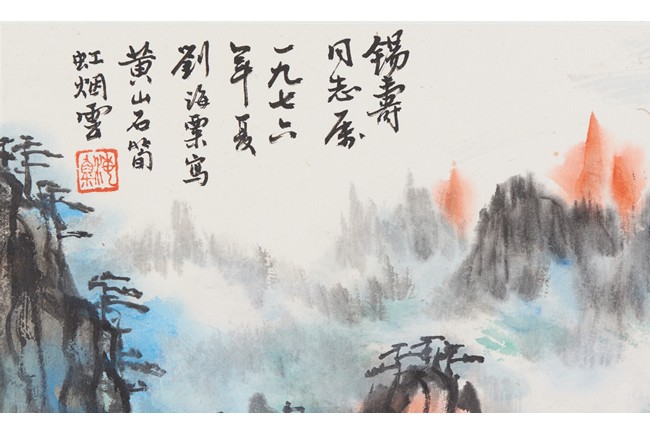 錫壽
同志属
一九七六
年夏
劉海粟寫
黄山石筍
虹烟雲
海粟